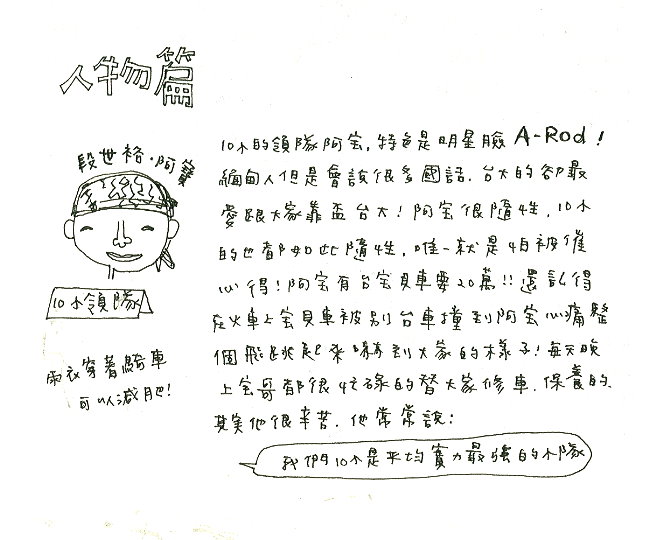 人物篇
段世裕·阿寶
10小領隊
雨衣穿著騎車
可以減肥!
10小的領隊阿宝,特色是明星臉 A-Rod!
緬甸人但是會說很多國話.台大的卻最
愛跟大家靠盃台大!阿宝很隨性,10小
的也都如此隨性,唯一就是
心得!阿宝有台宝貝車要20萬!!還記得
在火車上宝貝車被別台車撞到阿宝心痛整
個飛跳起來嚇到大家的樣子!每天晚
上宝哥都很忙碌的替大家修車.保養的.
其实他很辛苦.他常常說:
我們10小是平均實力最強的小隊